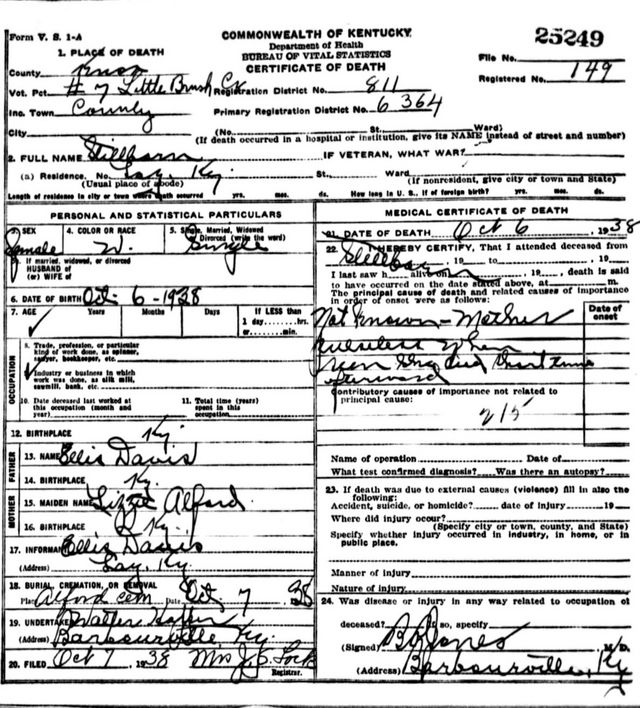 Form V. S. 1-A
COMMONWEALTH OF KENTUCKY
Department of Health
BUREAU OF VITAL STATISTICS
CERTIFICATE OF DEATH
25249
File No.
Registered No. 149
1. PLACE OF DEATH
County Knox
Vot. Pct. # 7 Little Brush Ck
Registration District No. 811
Inc. Town County
Primary Registration District No. 6364
City (No. St. Ward)
(If death occurred in a hospital or institution, give its NAME instead of street and number)
2. FULL NAME Stillborn
IF VETERAN, WHAT WAR?
(a) Residence. No. Lay, Ky. St., Ward
(Usual place of abode) (If nonresident, give city or town and State)
Length of residence in city or town where death occurred yrs. mos. ds. How long in U. S., if of foreign birth? yrs. mos. ds.
PERSONAL AND STATISTICAL PARTICULARS
3. SEX Female
4. COLOR OR RACE W.
5. Single, Married, Widowed
Divorced (write the word) Single
If married, widowed, or divorced
HUSBAND of
(or) WIFE of
6. DATE OF BIRTH Oct- 6-1938
7. AGE Years Months Days If LESS than
1 day hrs.
or min.
OCCUPATION
8. Trade, profession, or particular
kind of work done, as spinner,
sawyer, bookkeeper, etc.
Industry or business in which
work was done, as silk mill,
sawmill, bank, etc.
10. Date deceased last worked at
this occupation (month and
year)
11. Total time (years)
spent in this
occupation
12. BIRTHPLACE Ky.
FATHER
13. NAME Ellis Davis
14. BIRTHPLACE Ky.
MOTHER
15. MAIDEN NAME Lizzie Alford
16. BIRTHPLACE Ky.
17. INFORMANT Ellis Davis
(Address) Lay, Ky.
18. BURIAL, CREMATION, OR REMOVAL
Place Alford cem Date Oct. 7 1938
19. UNDERTAKER Walter
(Address) Barbourville Ky.
20. FILED Oct 7, 1938 Mrs J. E. Lock
Registrar.
MEDICAL CERTIFICATE OF DEATH
21. DATE OF DEATH Oct 6, 1938
22. I HEREBY CERTIFY, That I attended deceased from
Stillborn, 19 to, 19
I last saw h alive on, 19, death is said
to have occurred on the date stated above, at m.
The principal cause of death and related causes of importance
in order of onset were as follows:
Date of
onset
Not Known - Mother
Pulseless when
seen
afterward
Contributory causes of importance not related to
principal cause:
215
Name of operation Date of
What test confirmed diagnosis? Was there an autopsy?
23. If death was due to external causes (violence) fill in also the
following:
Accident, suicide, or homicide? date of injury 19
Where did injury occur?
(Specify city or town, county, and State)
Specify whether injury occurred in industry, in home, or in
public place.
Manner of injury
Nature of injury
24. Was disease or injury in any way related to occupation of
deceased? If so, specify
(Signed) B Jones M/D.
(Address) Barbourville, Ky